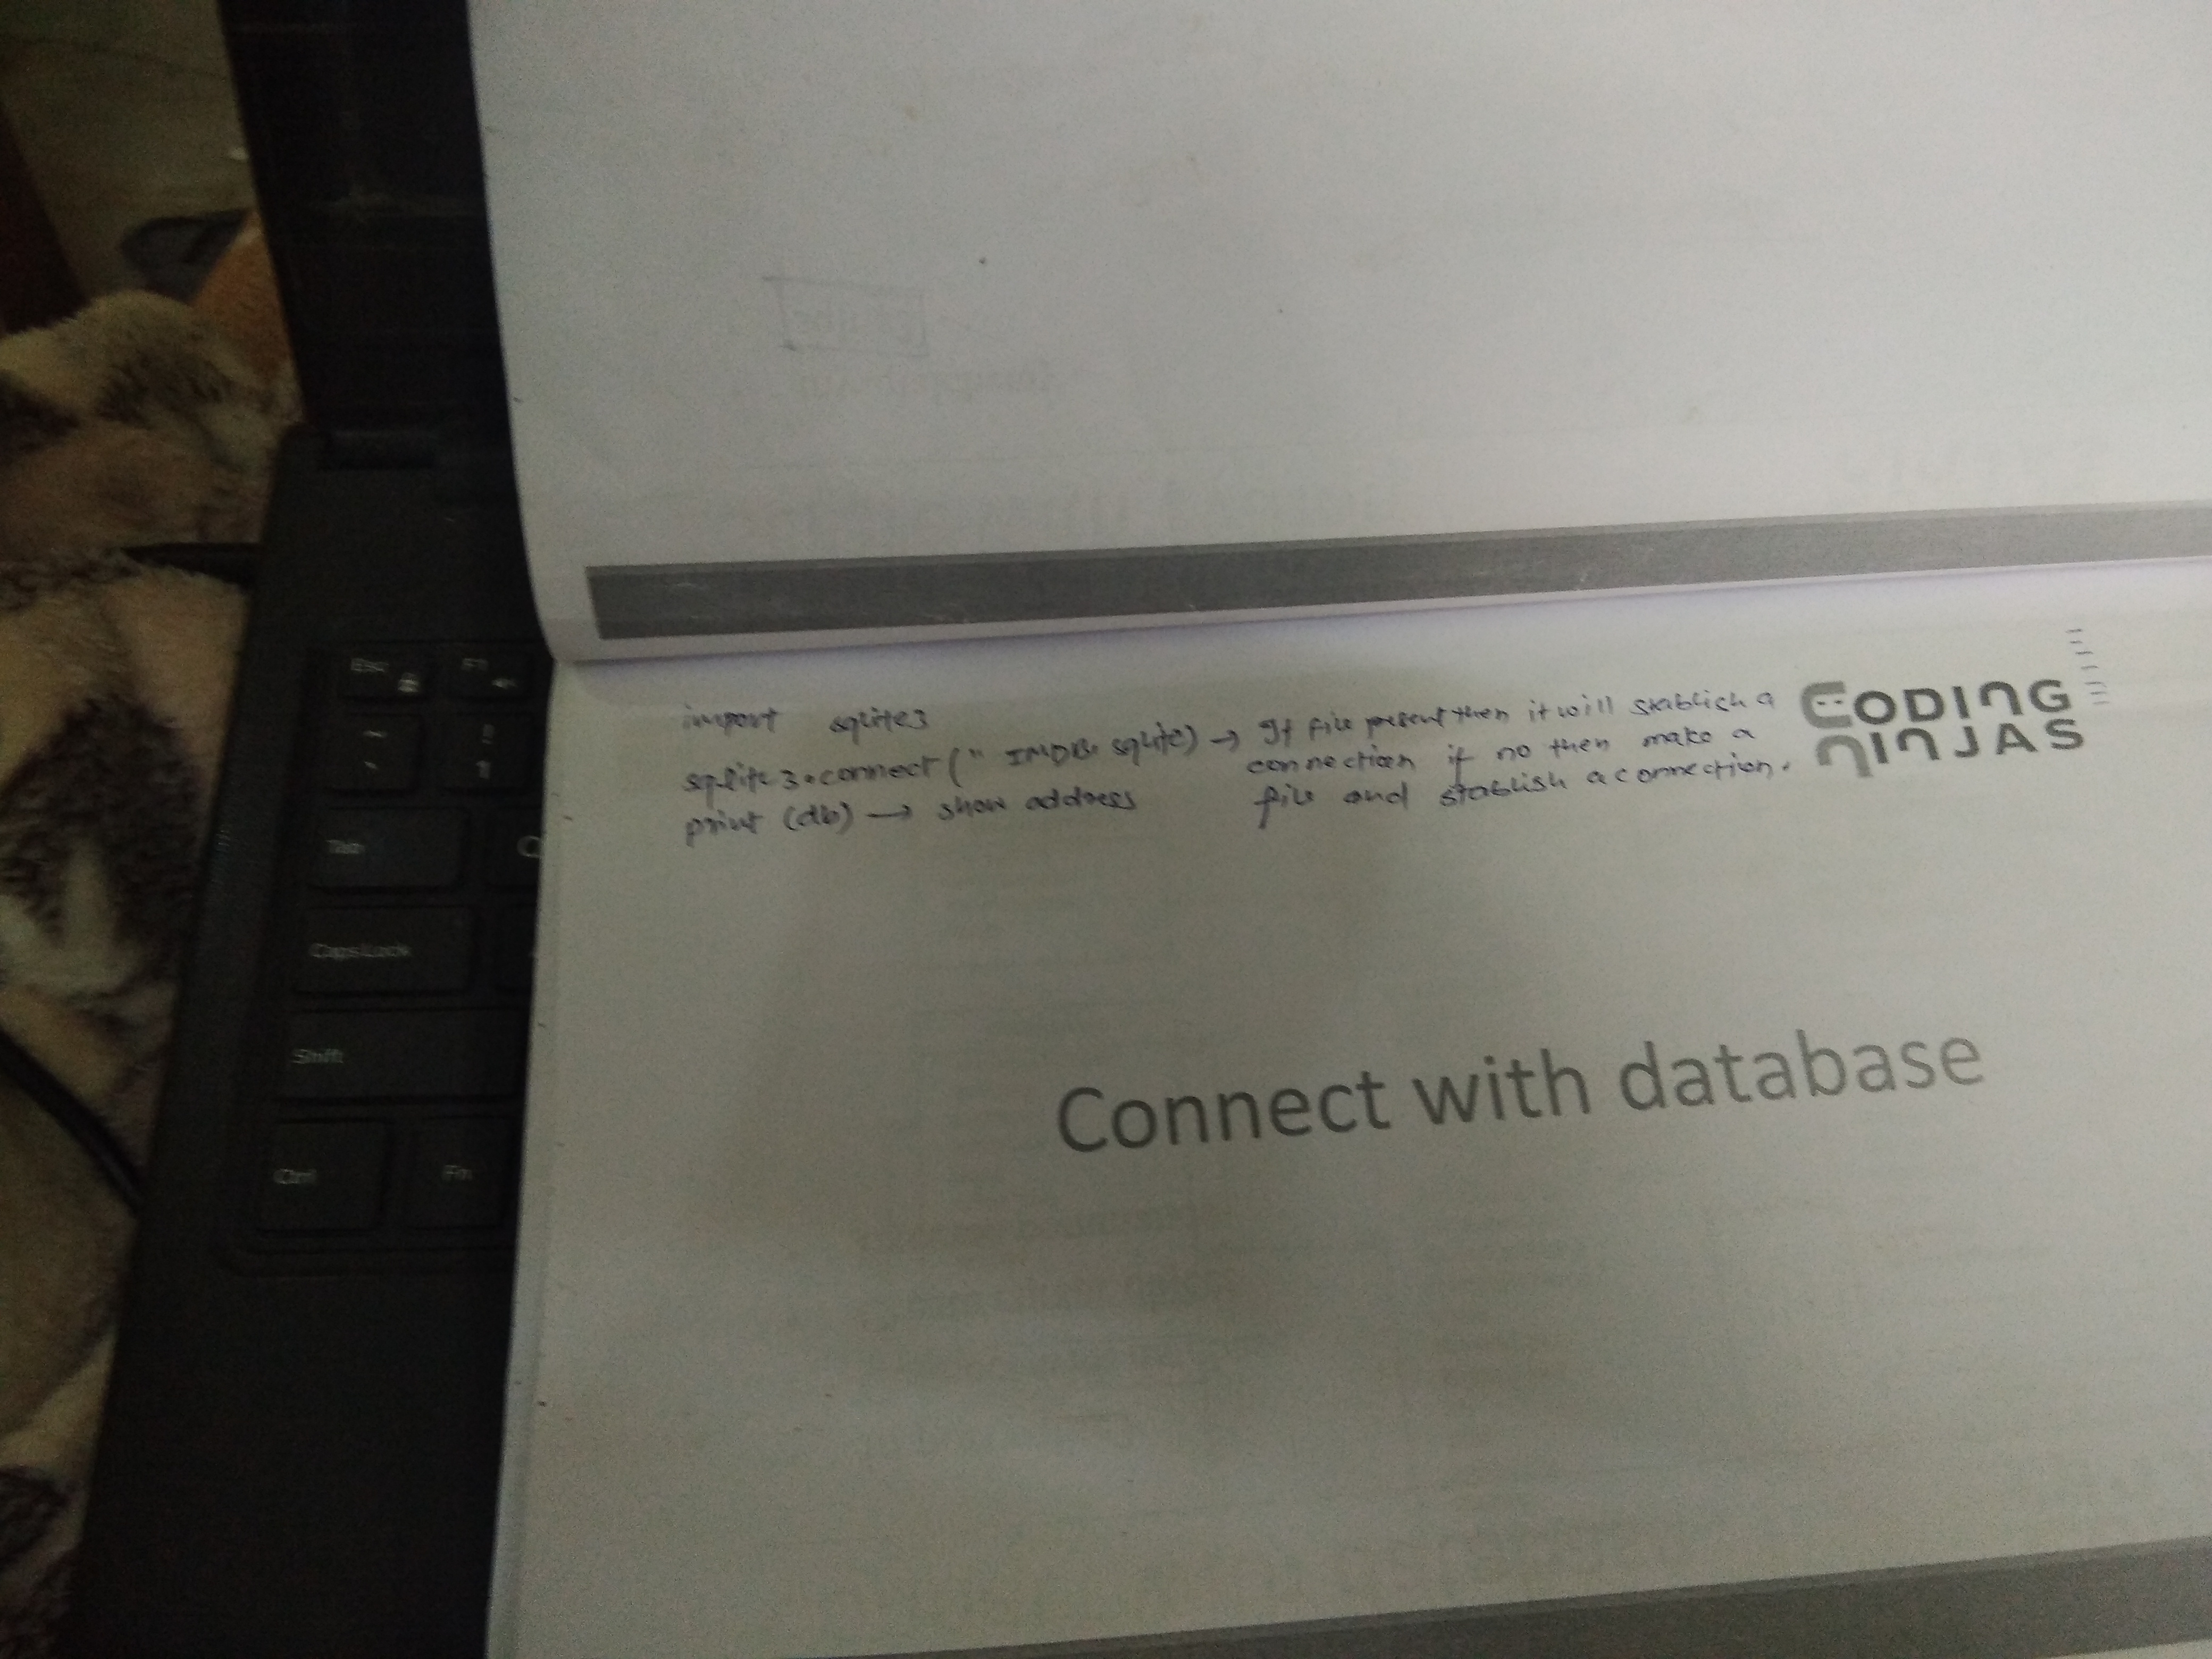 import sqlite3
sqlite3.connect(" IMDB. sqlite) → If file present then it will stablich a
connection if no then make a
print (db) → show address file and stablish a connection.
CODING
NINJAS
Connect with database
Esc
F1
~
`
!
1
Tab
Caps Lock
Shift
Ctrl
Fn